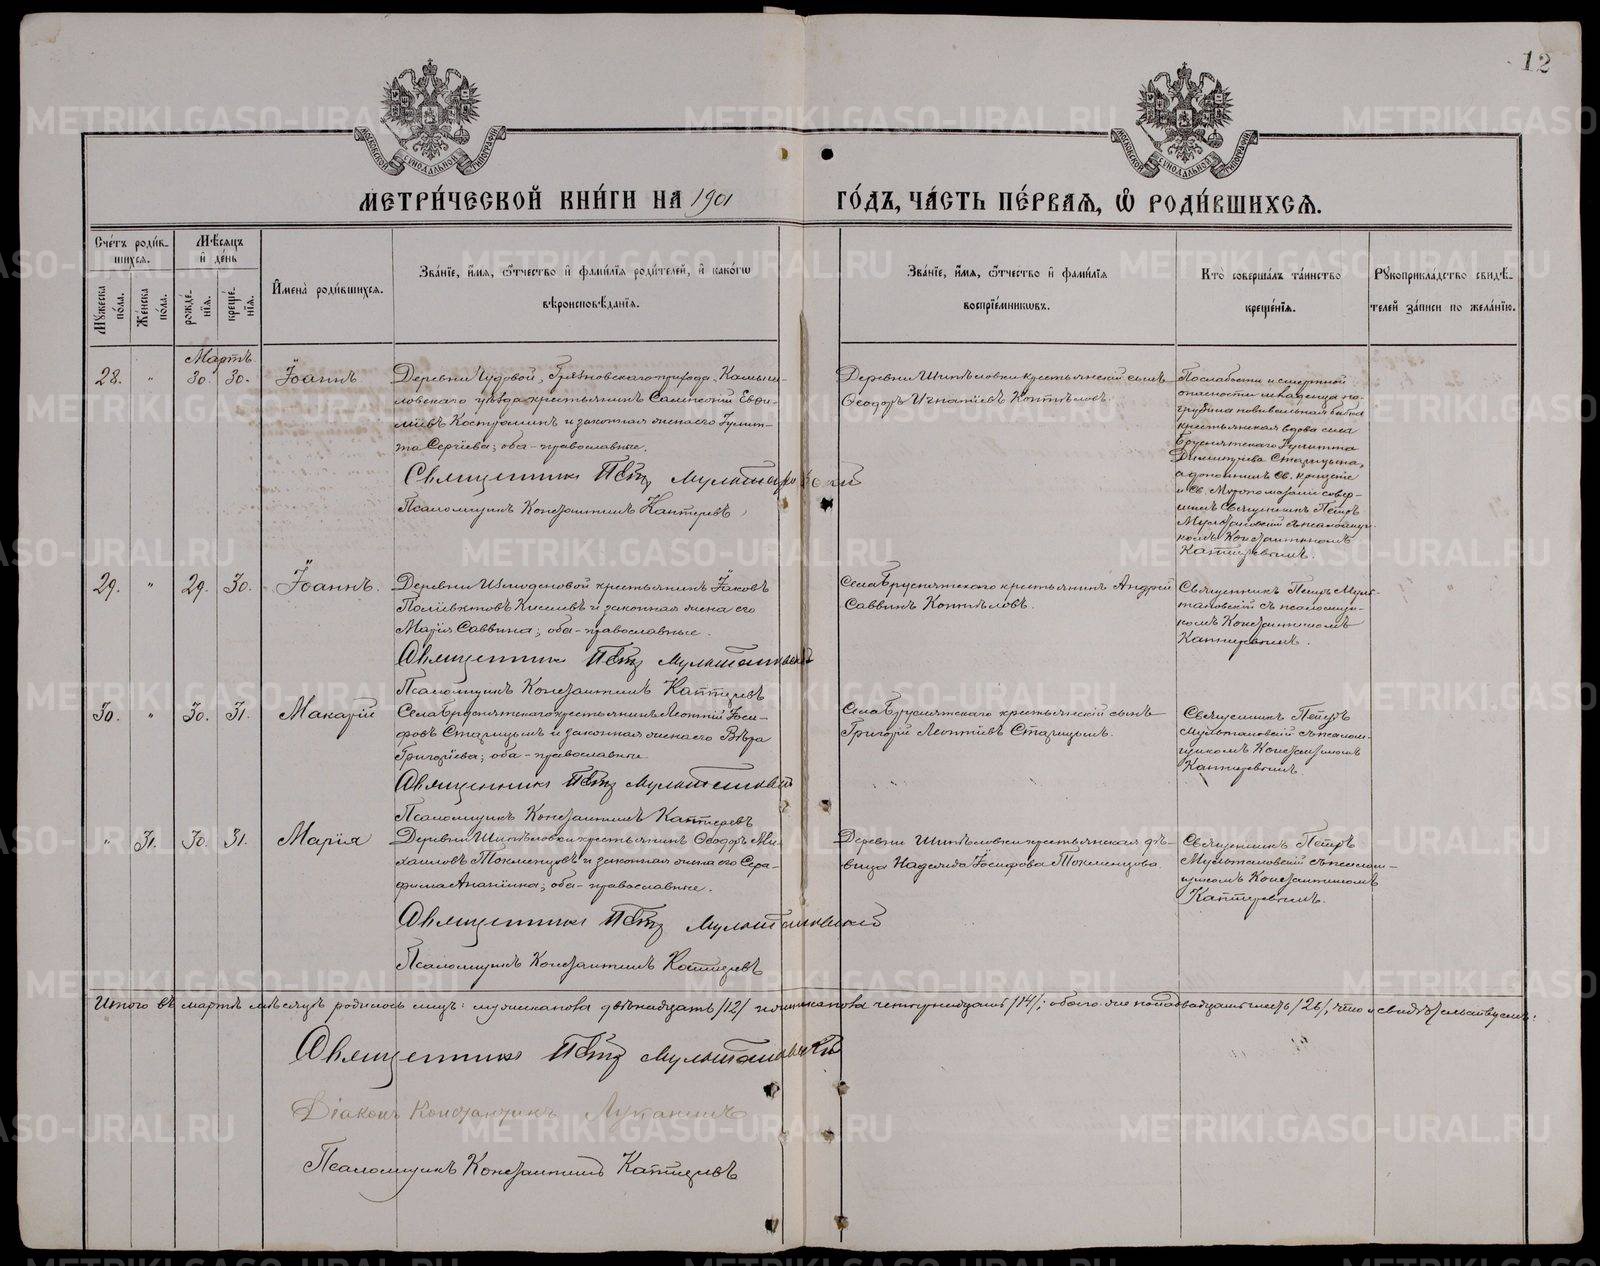 12
МОСКОВСКОЙ СѴНОДАЛЬНОЙ ТИПОГРАФІИ
МОСКОВСКОЙ СѴНОДАЛЬНОЙ ТИПОГРАФІИ
МЕТРИ́ЧЕСКОЙ КНИ́ГИ НА 1901
ГО́ДЪ, ЧА́СТЬ ПЕ́РВАѦ, Ѽ РОДИ́ВШИХСѦ.
Сче́тъ роди́вшихсѧ.
Мꙋ́жеска по́ла.
Же́нска по́ла.
Мѣ́сѧцъ и҆ де́нь
рожде́нїѧ.
креще́нїѧ.
И҆мена̀ роди́вшихсѧ.
Зва́нїе, и҆́мѧ, ѻ҆́тчество и҆ фами́лїѧ роди́телей, и҆ како́гѡ
вѣроисповѣ́данїѧ.
Зва́нїе, и҆́мѧ, ѻ҆́тчество и҆ фами́лїѧ
воспрїе́мникѡвъ.
Кто̀ соверша́лъ та́инство
креще́нїѧ.
Рꙋкоприкла́дство свидѣ́телей за́писи по жела́нїю.
Мартъ
28. " 30. 30. Іоаннъ
Деревни Чудовой, Грязновскаго прихода, Камыш-
ловскаго уѣзда крестьянинъ Сампсоній Евѳи-
міевъ Костроминъ и законная жена его Іулит-
та Сергіева; оба православные.
Священникъ Петръ Мультановскій
Псаломщикъ Константинъ Каптеревъ
Деревни Шипѣловки крестьянскій сынъ
Ѳеодоръ Игнатіевъ Коптѣловъ.
По слабости и смертной
опасности младенца по-
гружала повивальная бабка
крестьянская вдова села
Бруснятскаго Іулитта
Димитріева Старицына,
а дополнилъ Св. крещеніе
и Св. Мѵропомазаніе совер-
шилъ Священникъ Петръ
Мультановскій съ псаломщи-
комъ Константиномъ
Каптеревымъ.
29. " 29. 30. Іоаннъ.
Деревни Измоденовой крестьянинъ Іаковъ
Поліевктовъ Киселевъ и законная жена его
Марія Саввина; оба православные.
Священникъ Петръ Мультановскій
Псаломщикъ Константинъ Каптеревъ
Села Бруснятскаго крестьянинъ Андрей
Саввинъ Коптѣловъ.
Священникъ Петръ Муль-
тановскій съ псаломщи-
комъ Константиномъ
Каптеревымъ.
30. " 30. 31. Макарій
Села Бруснятскаго крестьянинъ Леонтій Іоси-
фовъ Старицынъ и законная жена его Вѣра
Григоріева; оба православные.
Священникъ Петръ Мультановскій
Псаломщикъ Константинъ Каптеревъ
Села Бруснятскаго крестьянскій сынъ
Григорій Леонтіевъ Старицынъ.
Священникъ Петръ
Мультановскій съ псалом-
щикомъ Константиномъ
Каптеревымъ.
" 31. 30. 31. Марія
Деревни Шипѣловки крестьянинъ Ѳеодоръ Ми-
хаиловъ Токменцовъ и законная жена его Сера-
фима Ананіина; оба православные.
Священникъ Петръ Мультановскій
Псаломщикъ Константинъ Каптеревъ
Деревни Шипѣловки крестьянская дѣ-
вица Надежда Іосифова Токменцова
Священникъ Петръ
Мультановскій съ псалом-
щикомъ Константиномъ
Каптеревымъ.
Итого въ мартѣ мѣсяцѣ родилось лицъ: мужескаго пола двѣнадцать /12/ и женскаго пола четырнадцать /14/; обоего же пола двадцать шесть /26/, что и свидѣтельствуемъ:
Священникъ Петръ Мультановскій
Діаконъ Константинъ Луканинъ
Псаломщикъ Константинъ Каптеревъ
METRIKI.GASO-URAL.RU